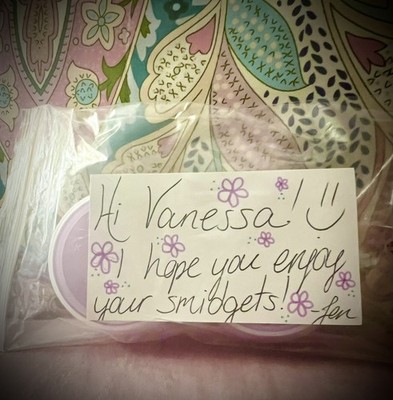 Hi Vanessa! :)
I hope you enjoy
your smidgets! -Jen